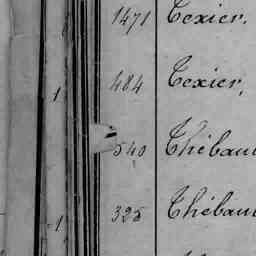 1471 Texier.
1 484 Texier.
540 Thébau
1 325 Thébau